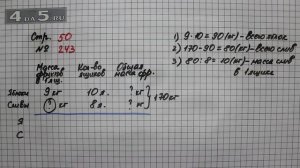 4DA5.RU
Стр. 50
№ 243
Масса фруктов в 1 ящ.
Кол-во ящиков
Общая масса фр.
Яблоки 9 кг 10 я. ? кг
Сливы ? кг 8 я. ? кг
170 кг
Я
С
1) 9·10=90(кг)-всего яблок
2) 170-90=80(кг)-всего слив
3) 80:8=10(кг)-масса слив
в 1 ящике